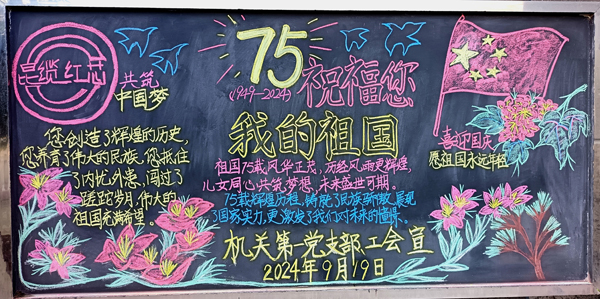 昆缆红芯
共筑
中国梦
您创造了辉煌的历史,
您养育了伟大的民族,您抵住
了内忧外患,闯过了
蹉跎岁月,伟大的
祖国充满希望。
75
(1949-2024)
祝福您
我的祖国
祖国75载风华正茂,历经风雨更辉煌,
儿女同心共筑梦想,未来盛世可期。
75载辉煌历程,铸就了民族新致,展现
了国家实力,更激发了我们对未来的憧憬。
机关第一党支部工会宣
2024年9月19日
喜迎国庆
愿祖国永远年轻